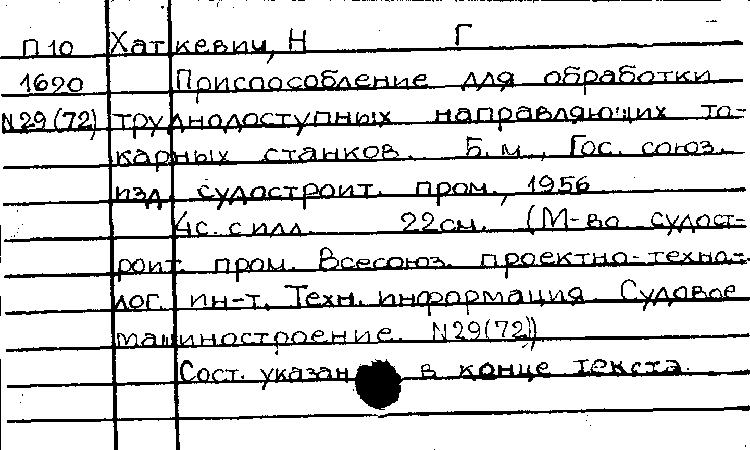 П10 Хаткевич, Н Г
1690 Приспособление для обработки
N29(72) труднодоступных направляющих то-
карных станков. Б.м., Гос. союз.
изд. судостроит. пром., 1956
4с. с илл. 22см. (М-во судост-
роит. пром. Всесоюз. проектно-техно-
лог. ин-т. Техн. информация. Судовое
машиностроение. N29(72))
Сост. указан в конце текста.